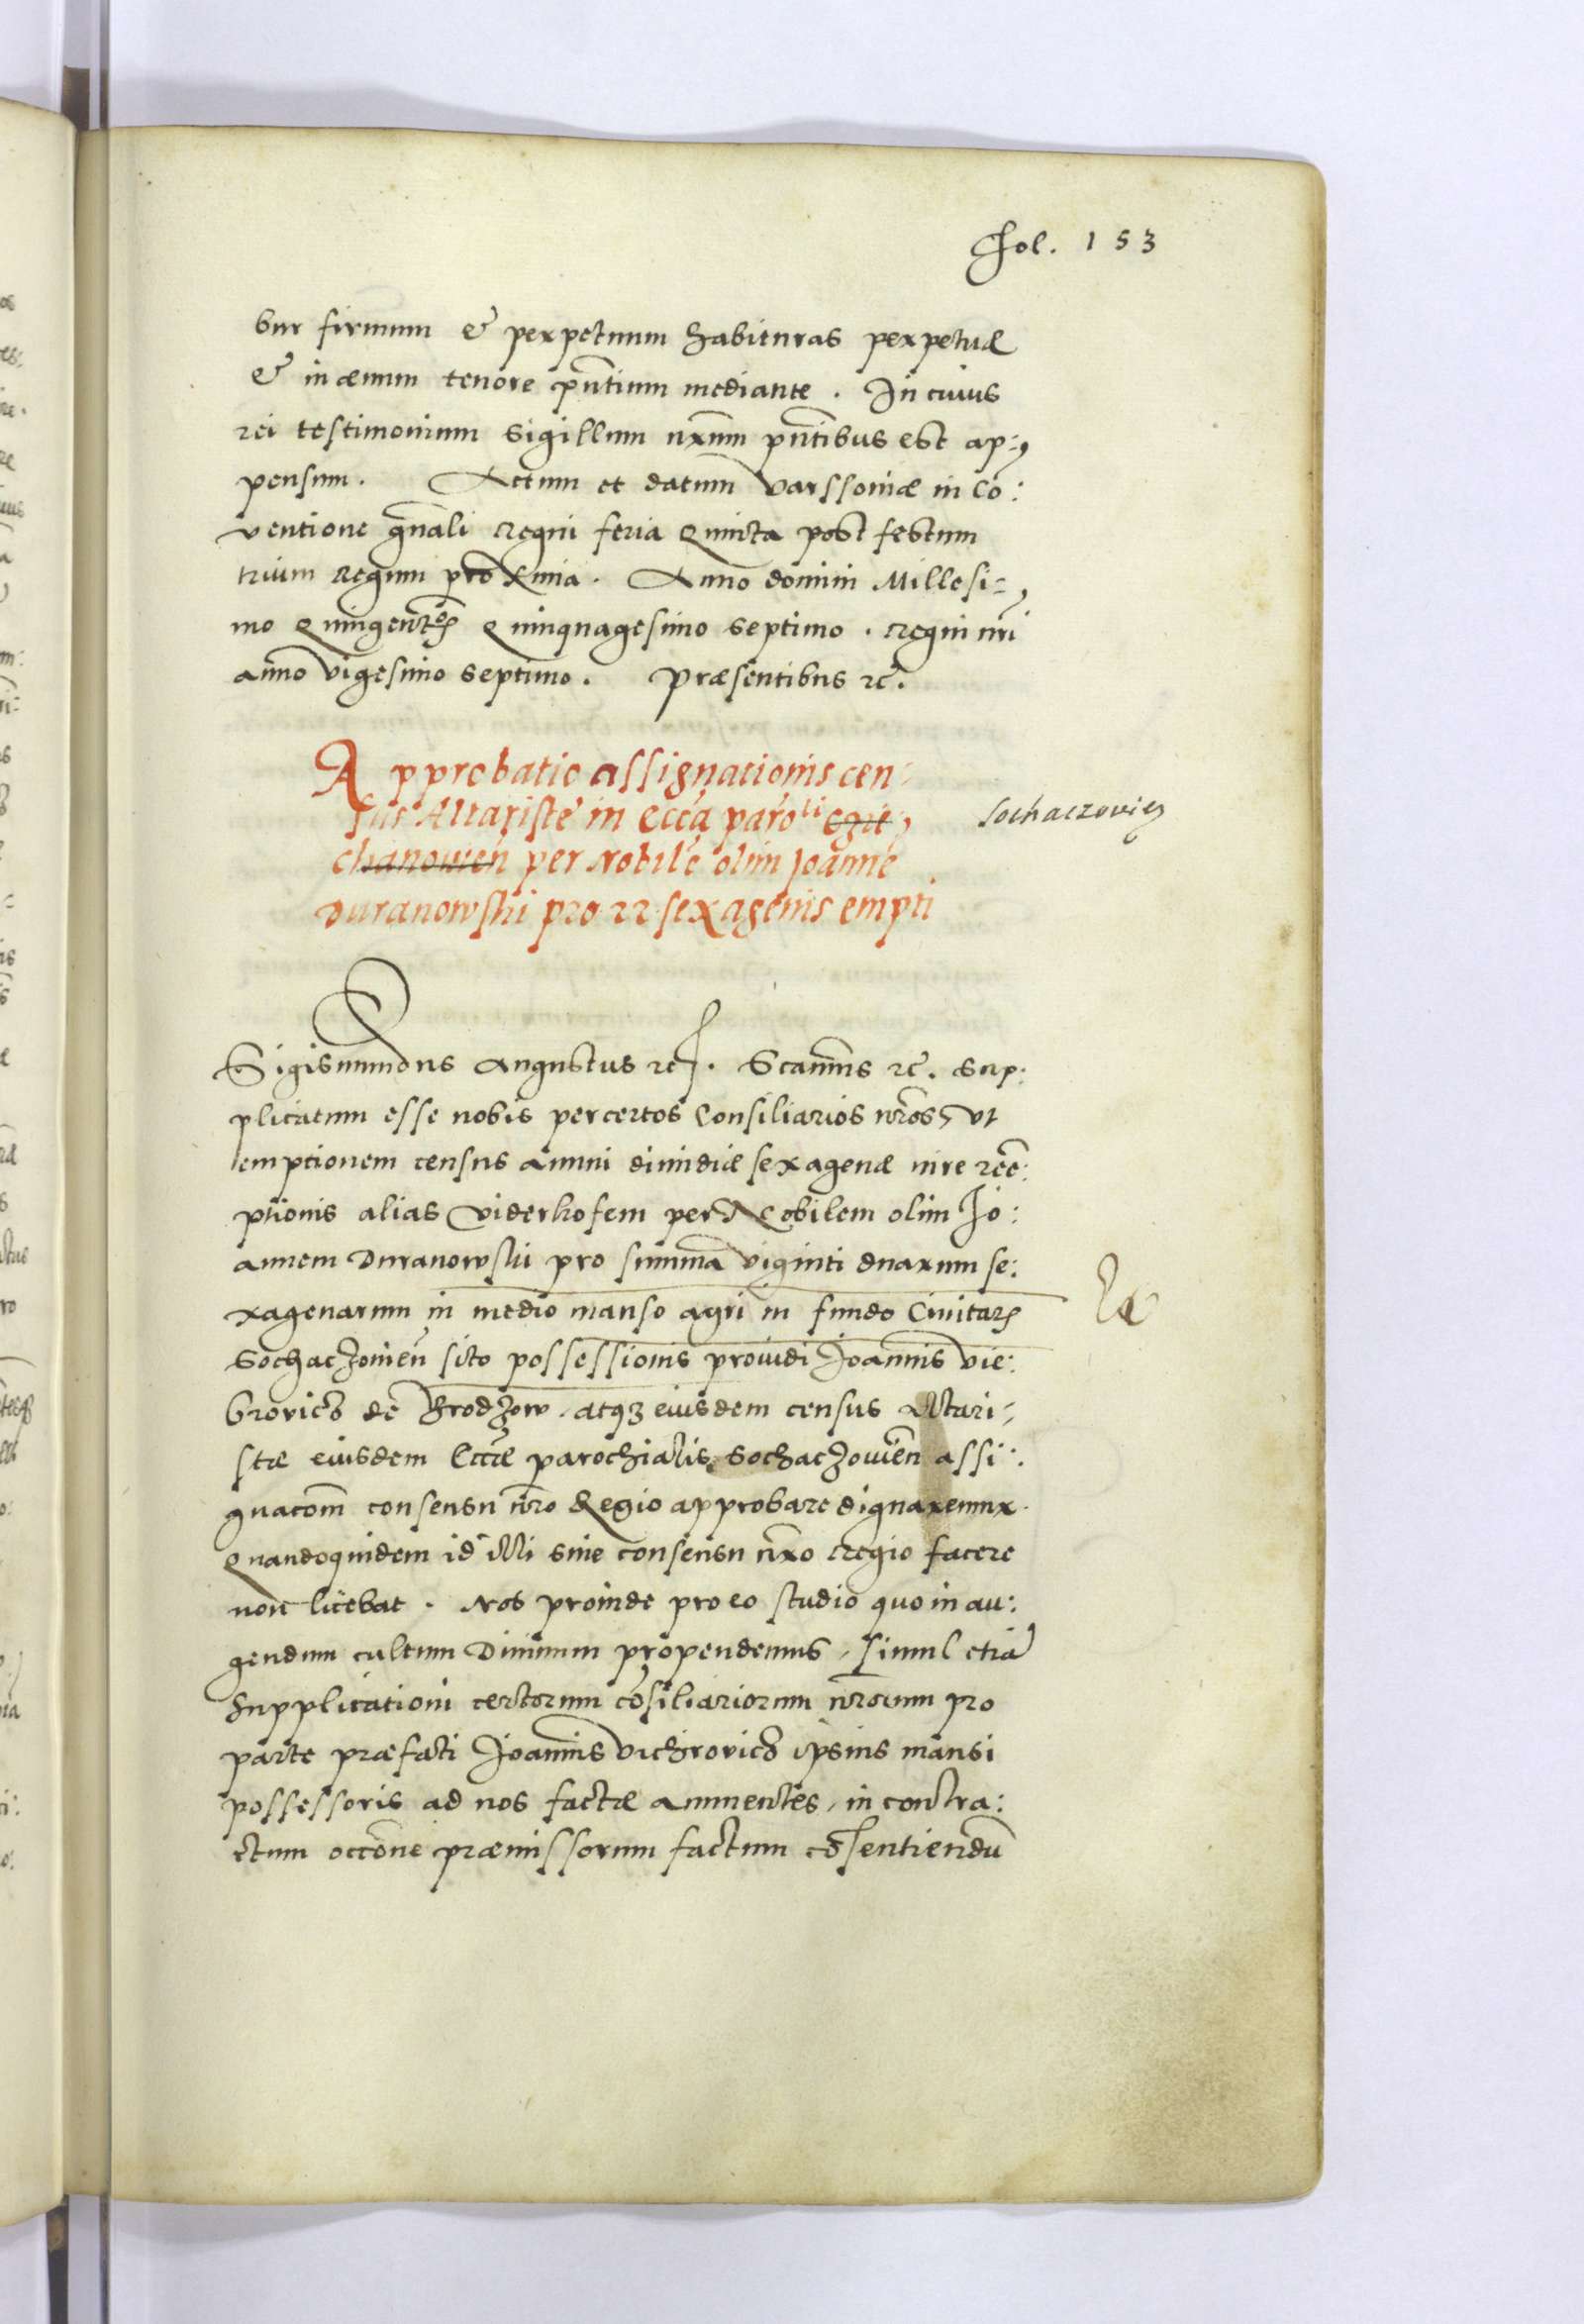 Fol. 153
bur firmum & perpetuum habituras perpetuæ
& in æuum tenore pñtium mediante. In cuius
rei testimonium sigillum nrũm pñtibus est ap:
pensum. Actum et datum Varssouiæ in Cõ:
ventione gñali regni feria Quinta post festum
trium Regum proxima. Anno domini Millesi=
mo Quingentẽ Quinquagesimo septimo. regni nri
anno vigesimo septimo. Præsentibus &c.
Approbatio assignationis cen:
sus Altaristæ in Eccã paroli
chanouieñ per Nobilẽ olim Joannẽ
Duranowski pro 22 sexagenis empti
Sochaczovieñ
Sigismundus Augustus &c. Scamus &c. Sup:
plicatum esse nobis per certos Consiliarios nros, vt
emptionem census annui dimidiæ sexagenæ iure reẽ:
ptionis alias Viderkofem per Nobilem olim Jo:
annem Duranowski pro summa viginti duarum se:
xagenarum in medio manso agri in fundo Ciuitatis
Sochaczouieñ sito possessionis prouidi Joannis Vie:
de Brodzow. atq3 eiusdem census Altari=
stæ eiusdem Eccæ parochialis Sochaczouieñ assi:
gnacom̃ consensu nro Regio approbare dignaremur.
Quandoquidem id illi sine consensu nro regio facere
non licebat. Nos proinde pro eo studio quo in au:
gendum cultum Diuinum propendemus, simul etiã
supplicationi certorum cõsiliariorum nrorum pro
parte præfati Joannis Vichrovicz ipsius mansi
possessoris ad nos factæ annuentes, in contra:
ctum occõne præmissorum factum cõsentiendũ